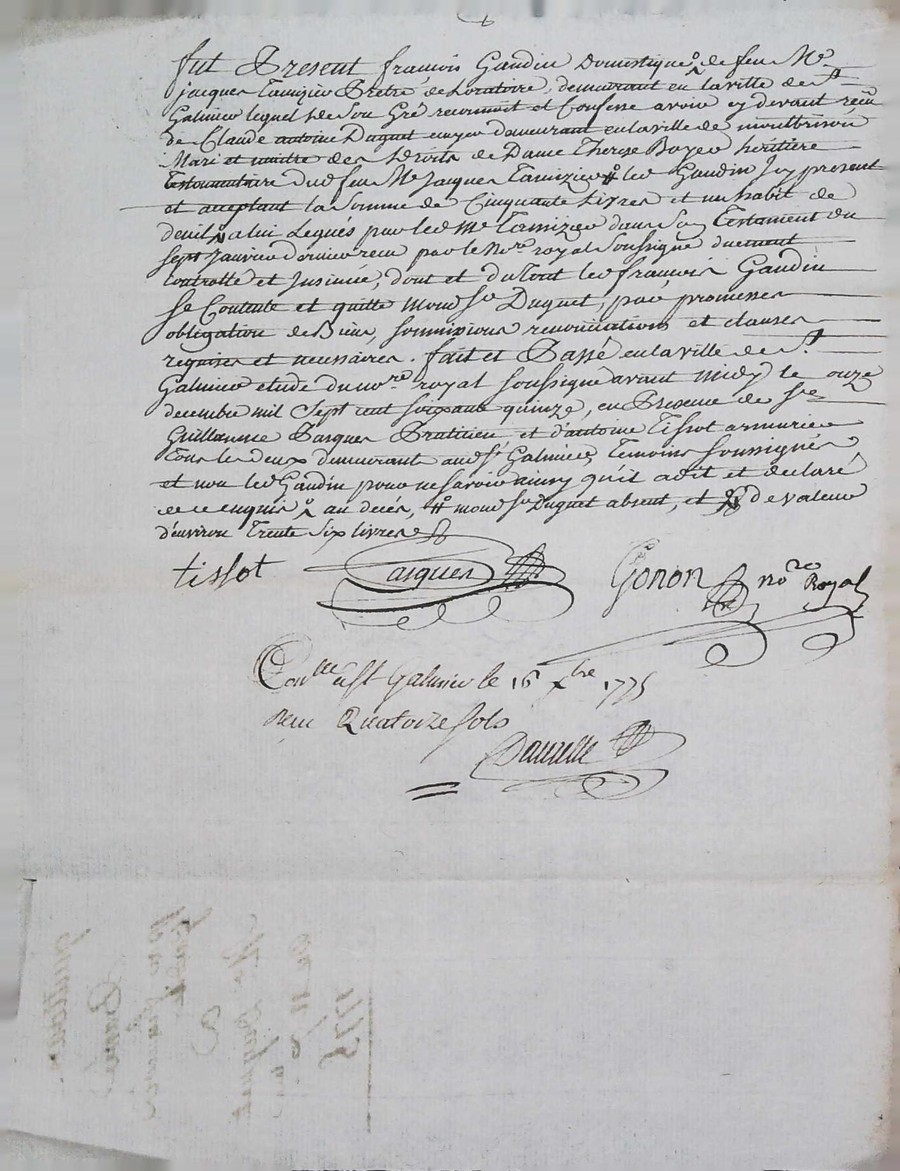 fut Present francois Gaudin Domestique de feu Me
jacques Tamizier Prêtre de Loratoire, demeurant en la ville de St
Galmier lequel de Son Gré reconnoit et Confesse avoir cy devant reçu
de Claude antoine Duguet demeurant en la ville de montbrison
Mari et maitre des Droits de Dame Therese Boyer heritiere
testamentaire dud feu Me Jacques Tamizier # led Gaudin Icy present
et acceptant la Somme de Cinquante Livres et un habit de
deuil a lui Legués par led Me Tamizier dans Son Testament du
sept Janvier dernier reçu par le Nore royal Soussigné duement
controllé et Insinué, dont et du tout led francois Gaudin
Se Contente et quitte mond Sr Duguet, par promesses
obligation de Biens, soumissions renonciations et clauses
requises et necessaires. fait et Passé en la ville de St
Galmier etude du nore royal Soussigné avant midy le onze
decembre mil Sept cent soixante quinze, en Presence de Sr
Guillaume Pasques Praticien et d'antoine Tissot armurier
tous les deux demeurants aud St Galmier, Temoins Soussignés
et non led Gaudin pour ne savoir ainsy qu'il a dit et déclaré
de ce enquis au deces, # mond Sr Duguet absent, et de valeur
d'environ Trente Six livres
tissot Pasques Gonon nore Royal
Conllé a St Galmier le 16 xbre 1775
Reçu Quatorze sols
1775